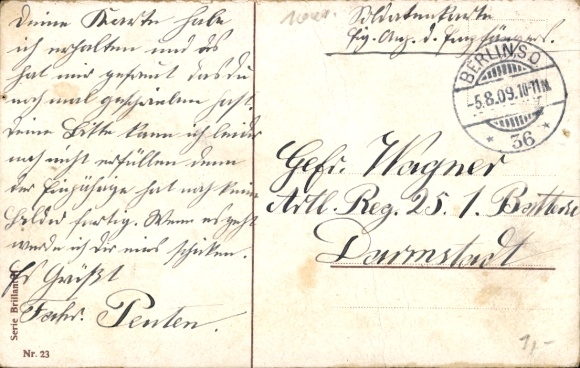 Deine Karte habe
ich erhalten und es
hat mir gefreut das du
noch mal geschrieben hast.
Deine Bitte kann ich leider
noch nicht erfüllen denn
der Einjährige hat noch keine
Bilder fertig. Wenn es geht
werde ich dir eins schicken.
Es Grüßt
Penten.
Serie Brillant
Nr. 23
Soldatenkarte
Eig. Ang. d. Empfängers.
BERLIN SO
-5.8.09.10-11N.
* 36 *
Gefr. Wagner
Artl. Reg. 25. 1. Batterie
Darmstadt
1,-